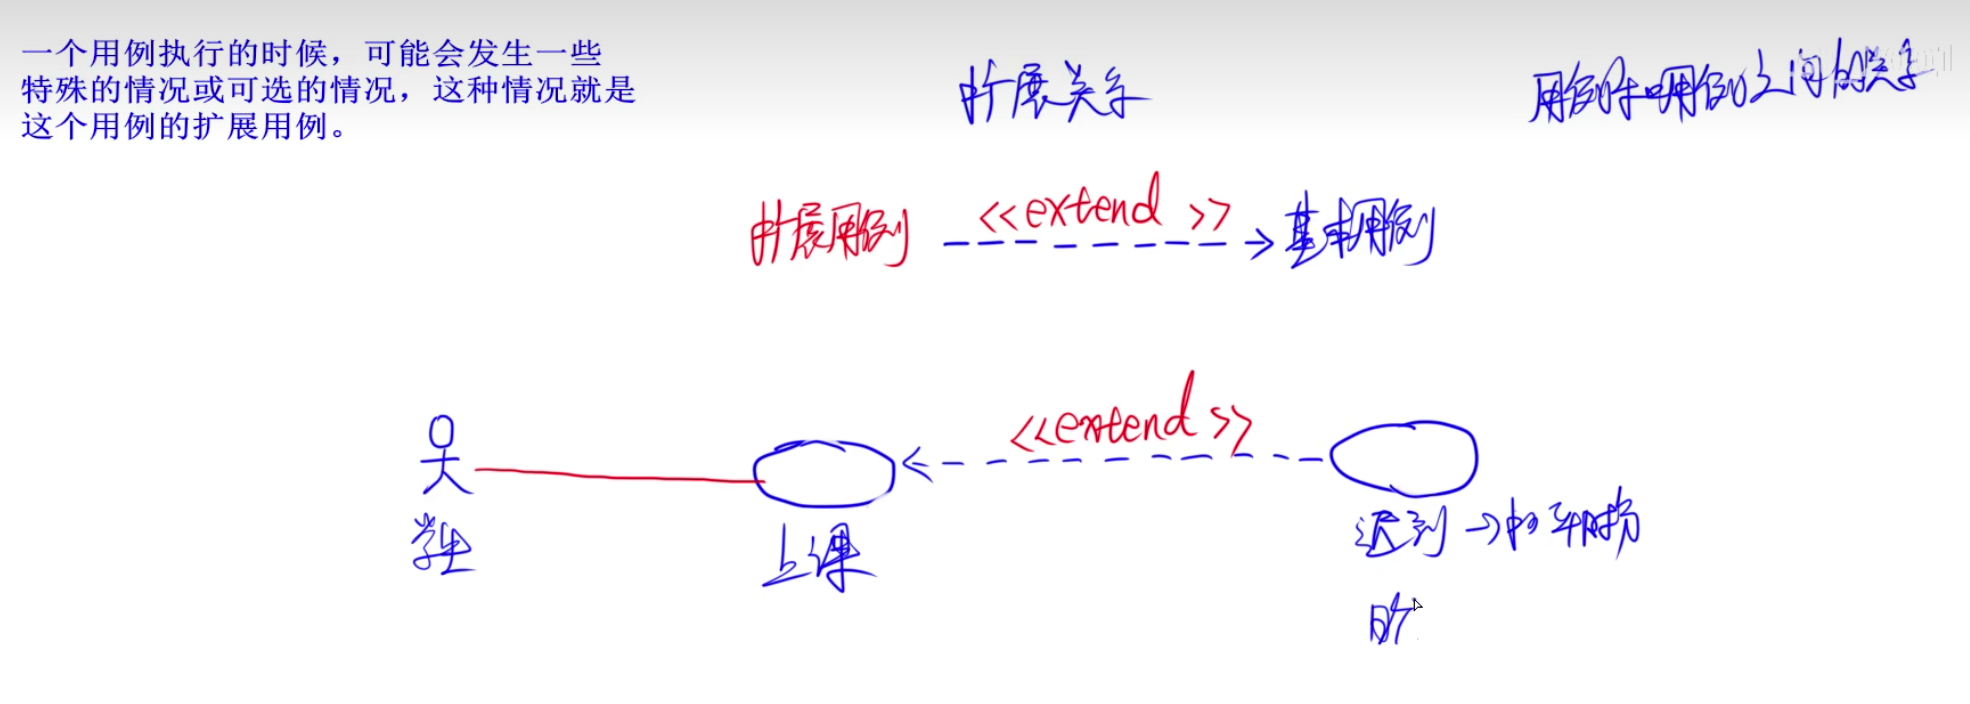 一个用例执行的时候，可能会发生一些
特殊的情况或可选的情况，这种情况就是
这个用例的扩展用例。
扩展关系
用例和用例之间的关系
扩展用例 <<extend>> 基本用例
<<extend>>
学生
上课
迟到 → 扣平时分
旷